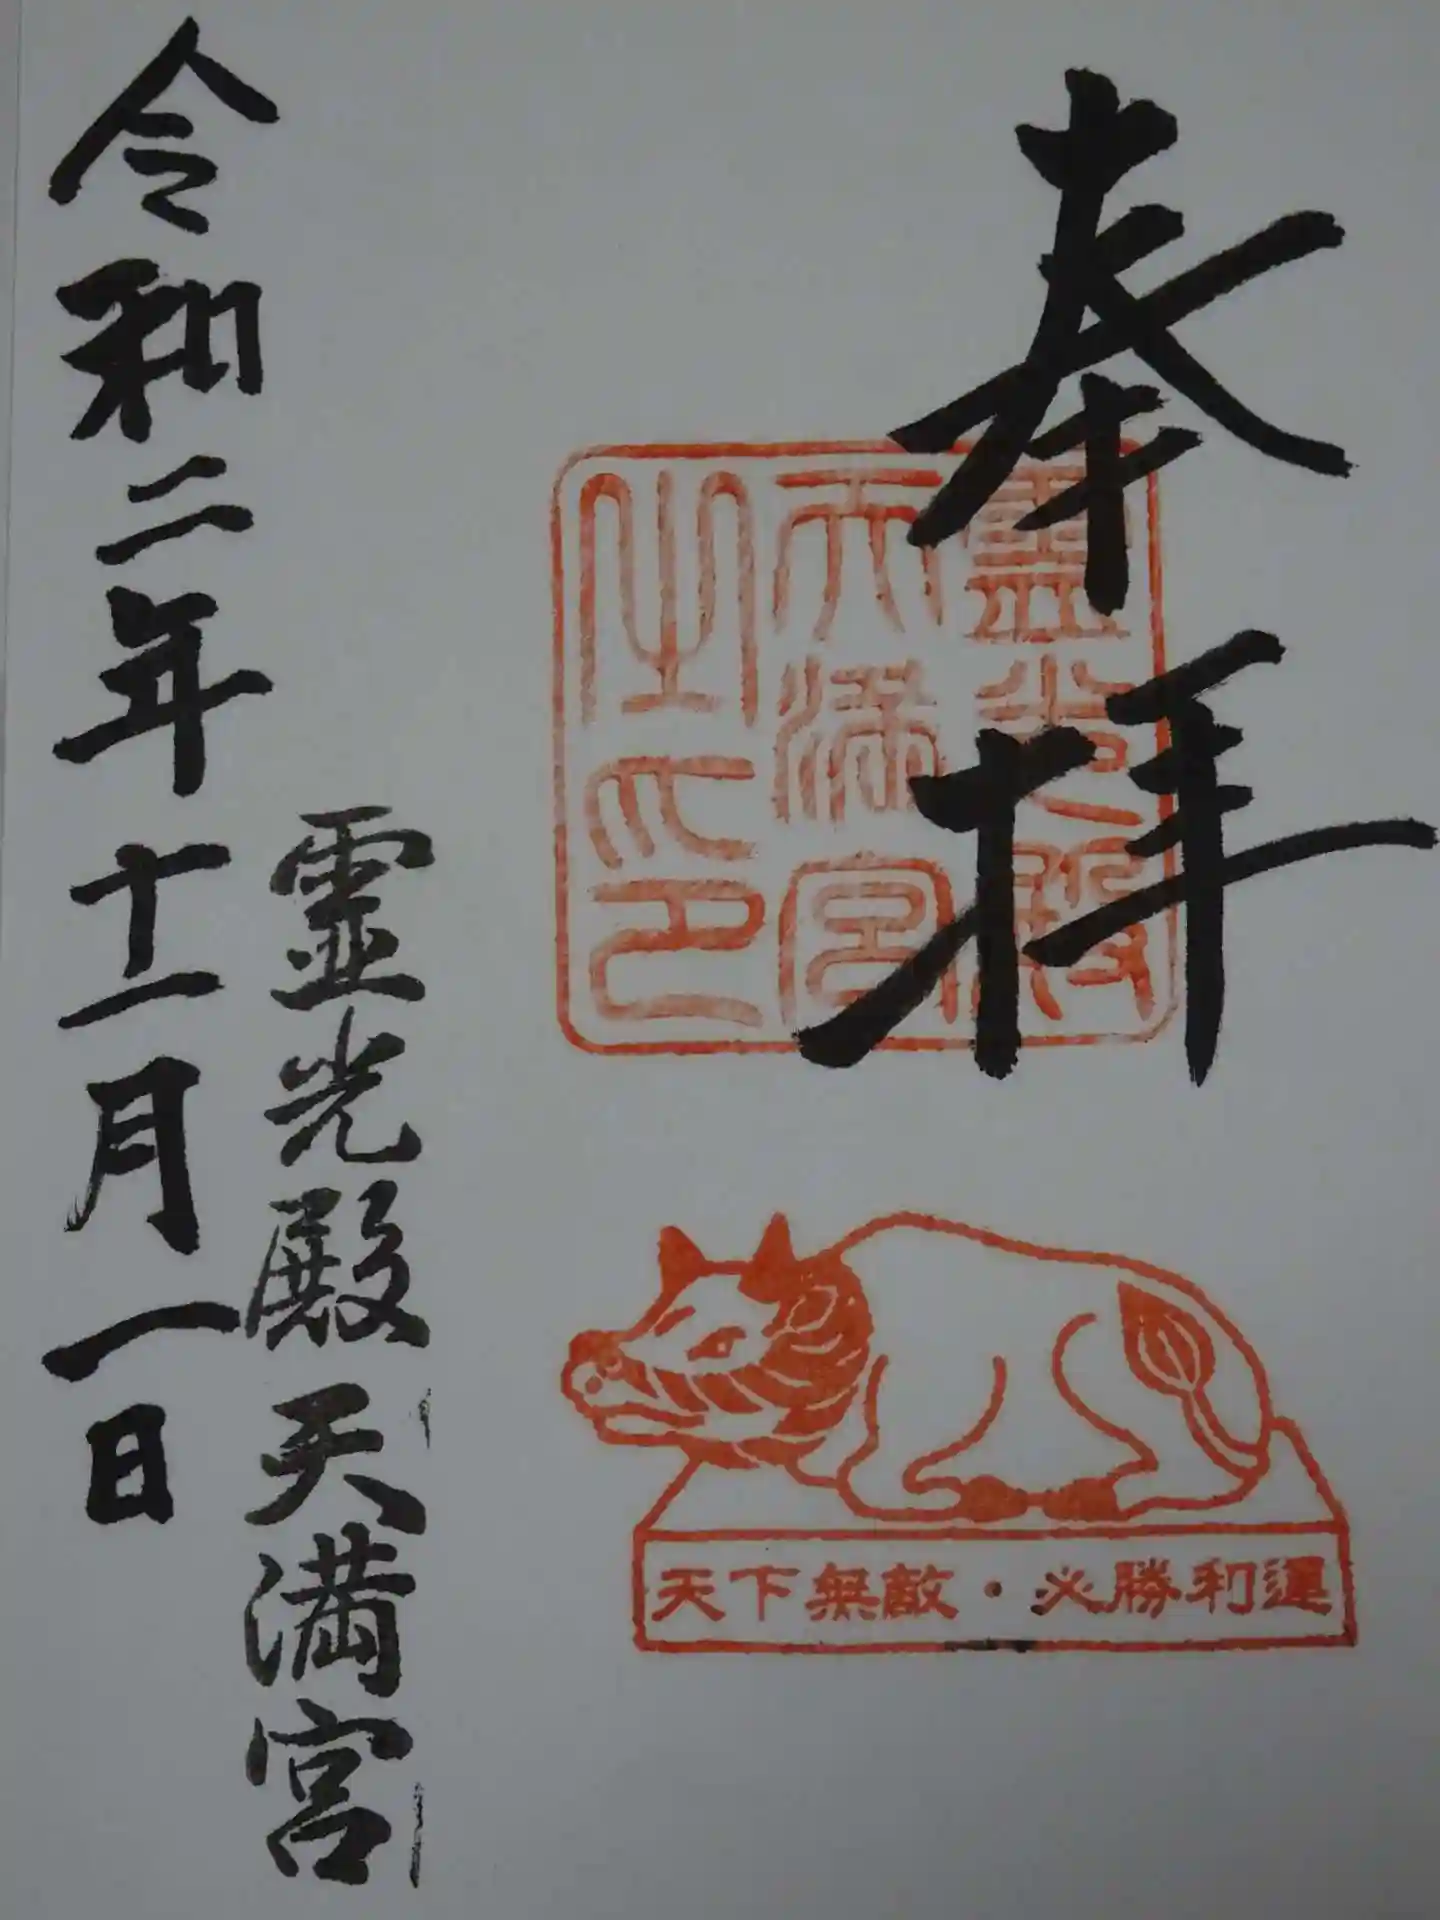 奉拝
霊光殿
天満宮
之印
天下無敵・必勝利運
霊光殿天満宮
令和二年十一月一日